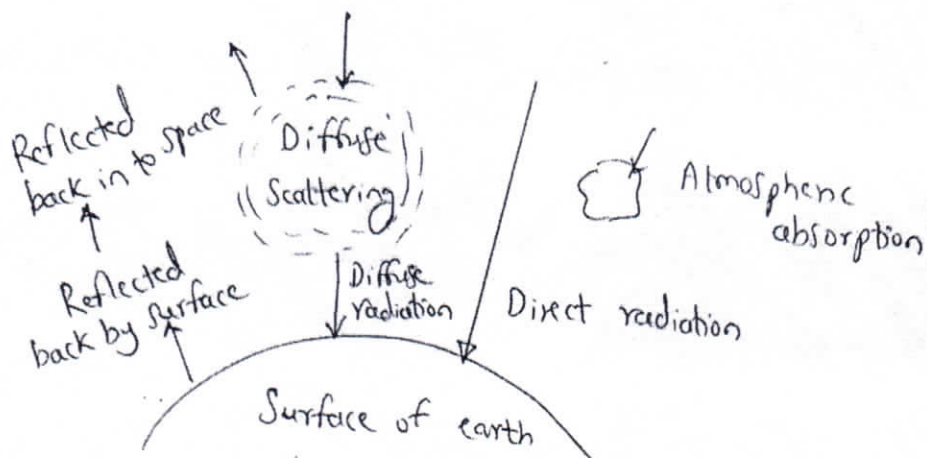 Reflected
back in to space
Diffuse
Scattering
Atmospheric
absorption
Reflected
back by surface
Diffuse
radiation
Direct radiation
Surface of earth